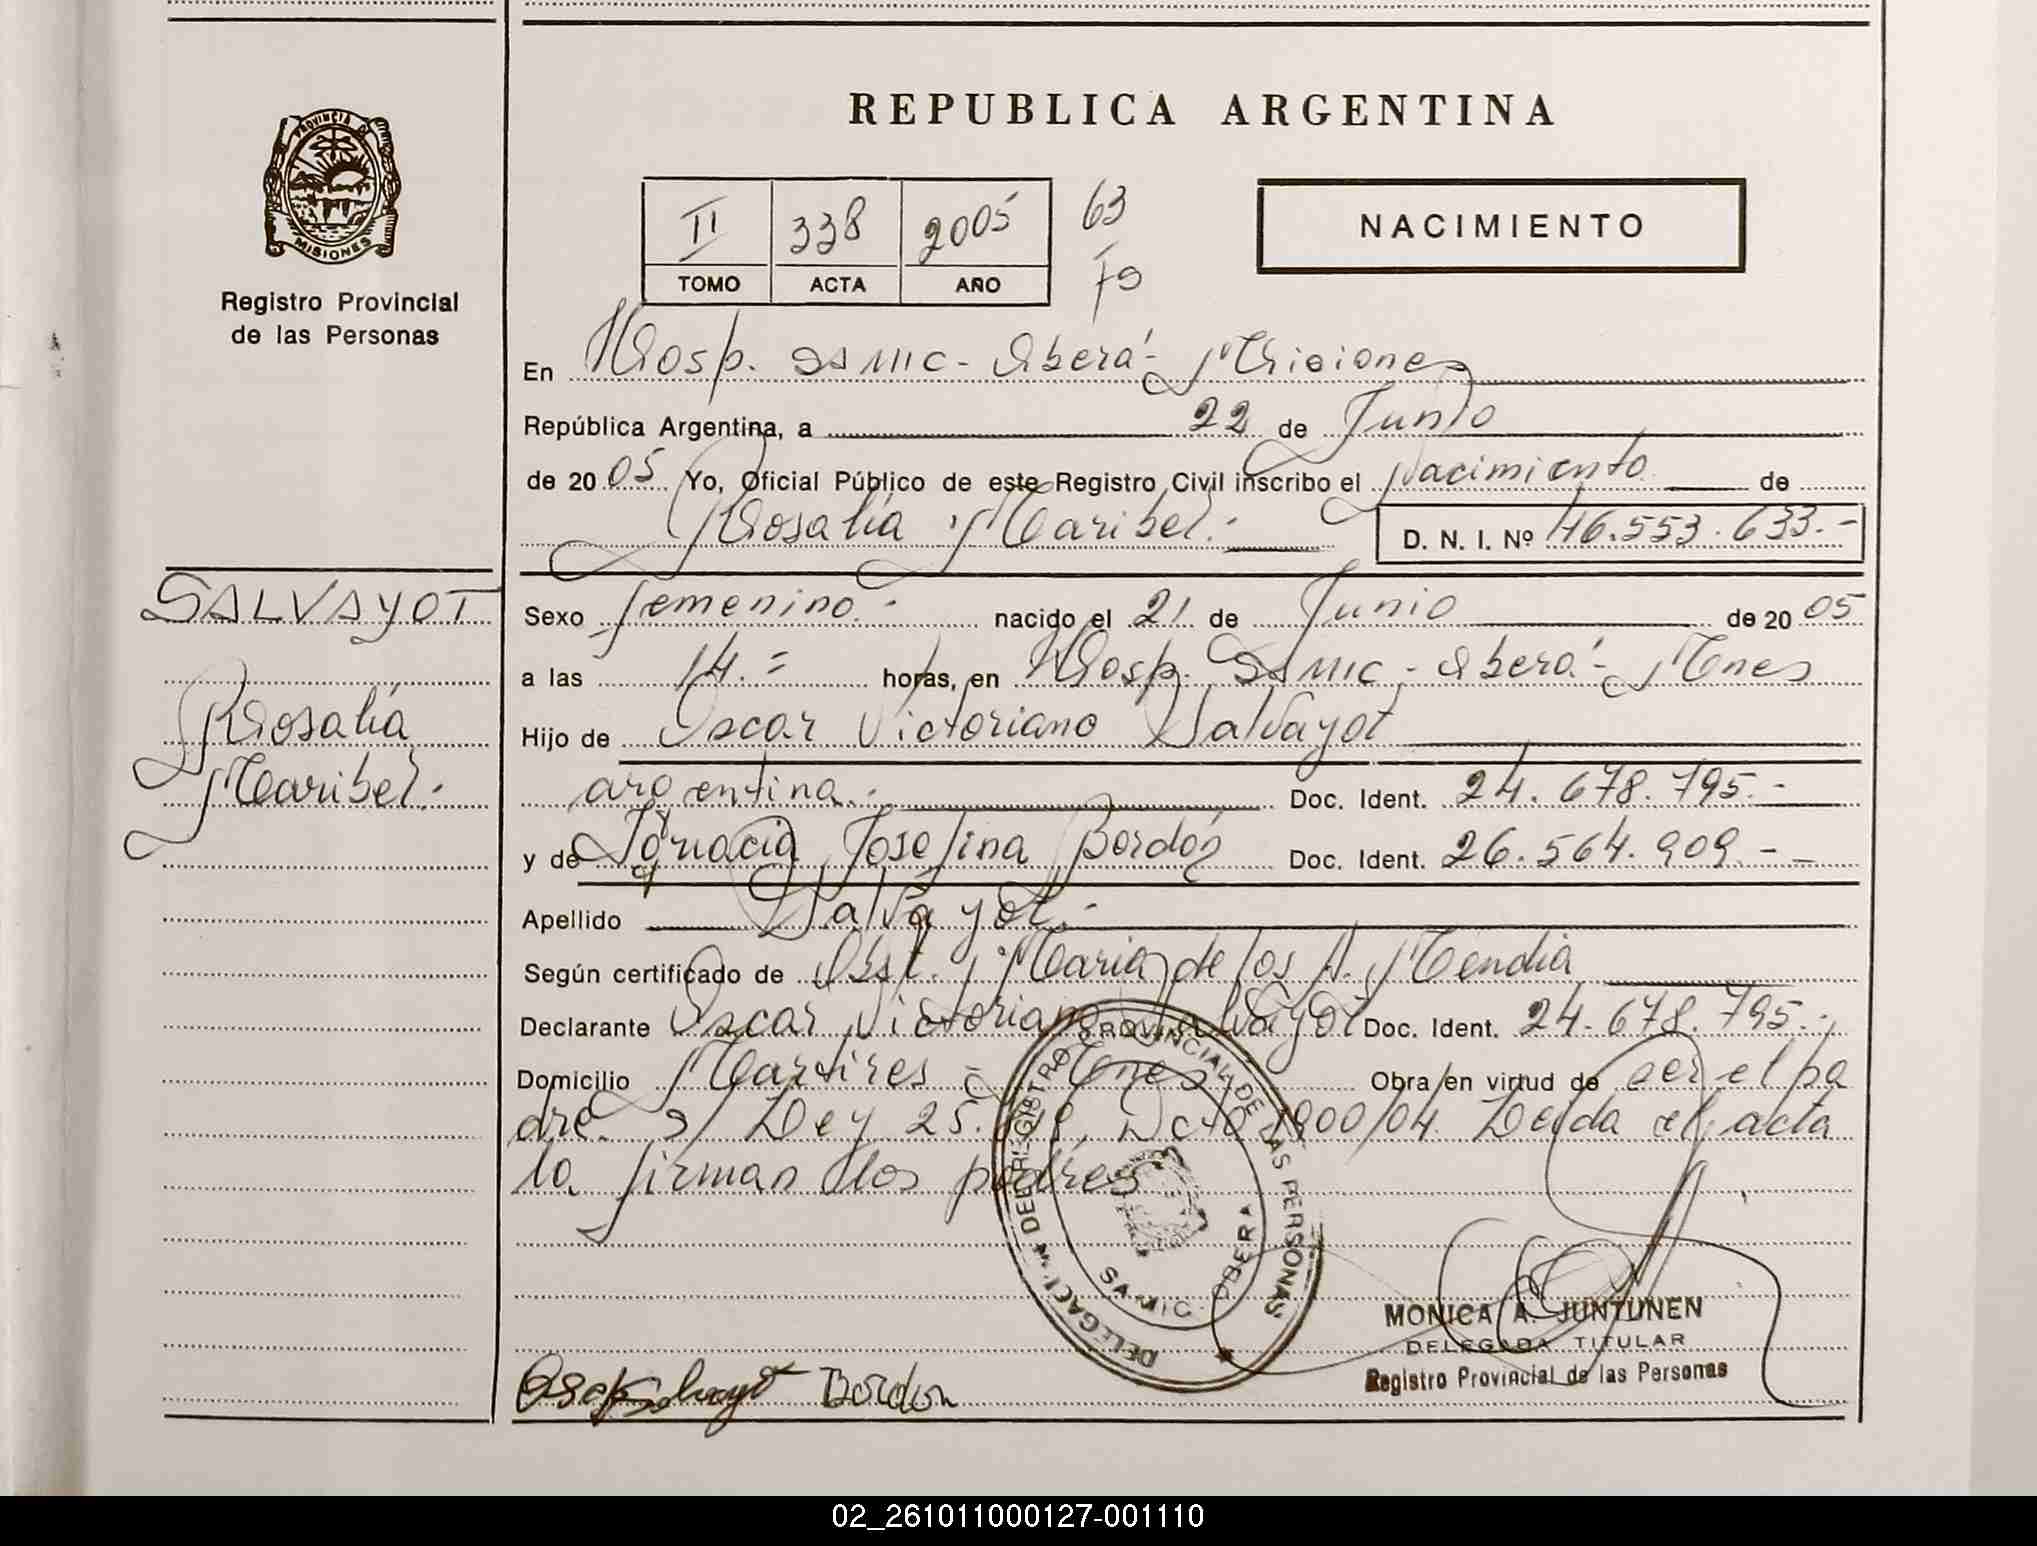 REPUBLICA ARGENTINA
PROVINCIA DE
MISIONES
Registro Provincial
de las Personas
II 338 2005 63
TOMO ACTA AÑO Fº
NACIMIENTO
En Hosp. SAMIC - Oberá - Misiones
República Argentina, a 22 de Junio
de 2005 Yo, Oficial Público de este Registro Civil inscribo el Nacimiento de
Rosalía Maribel.- D. N. I. Nº 46.553.633.-
SALVAYOT
Rosalía
Maribel.-
Sexo femenino.- nacido el 21 de Junio de 2005
a las 14.= horas, en Hosp. SAMIC - Oberá - Mnes
Hijo de Oscar Victoriano Salvayot
argentina.- Doc. Ident. 24.678.795.-
y de Ignacia Josefina Bordón Doc. Ident. 26.564.909.-
Apellido Salvayot.-
Según certificado de Obst. María de los A. Mendia
Declarante Oscar Victoriano Salvayot Doc. Ident. 24.678.795.-
Domicilio Martires - Mnes Obra en virtud de ser el pa
dre. S/ Ley 25. Dcto 1900/04. Leida el acta
la firman los padres
DELEGACION DEL REGISTRO PROVINCIAL DE LAS PERSONAS
SAMIC - OBERA
Salvayot Bordon
MONICA A. JUNTUNEN
DELEGADA TITULAR
Registro Provincial de las Personas
02_261011000127-001110